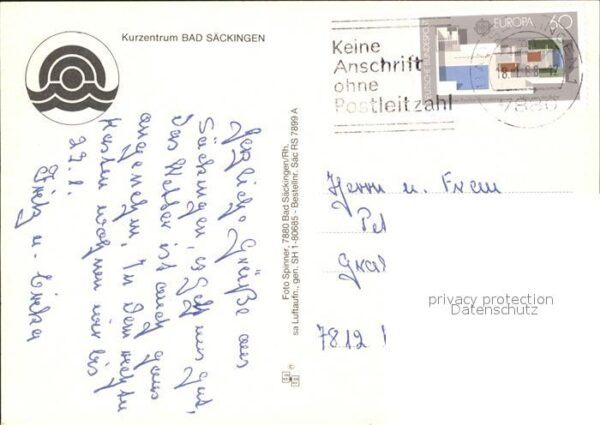 Kurzentrum BAD SÄCKINGEN
Herzliche Grüße aus
Säckingen, es geht uns gut,
das Wetter ist auch ganz
angenehm. In dem rechten
Kasten wohnen wir bis
22.1.
Fritz u.
Foto Spinner, 7880 Bad Säckingen/Rh.
sa Luftaufn., gen. SH 1-80685 - Bestellnr. Säc RS 7899 A
Keine
Anschrift
ohne
Postleitzahl
DEUTSCHE BUNDESPOST
EUROPA 60
7880
Herrn u. Frau
Pet
Gral
7812 !
privacy protection
Datenschutz